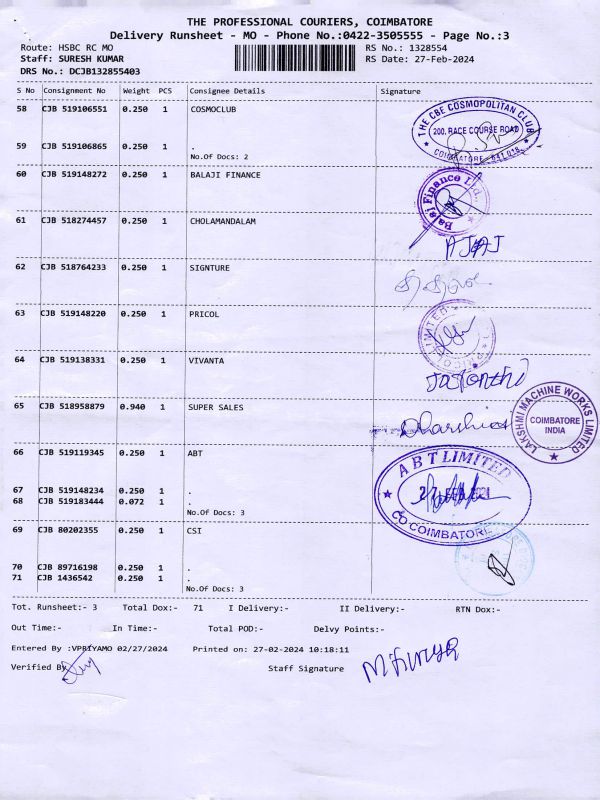 THE PROFESSIONAL COURIERS, COIMBATORE
Delivery Runsheet - MO - Phone No.:0422-3505555 - Page No.:3
Route: HSBC RC MO RS No.: 1328554
Staff: SURESH KUMAR RS Date: 27-Feb-2024
DRS No.: DCJB132855403
S No Consignment No Weight PCS Consignee Details Signature
58 CJB 519106551 0.250 1 COSMOCLUB
THE CBE COSMOPOLITAN CLUB
200, RACE COURSE ROAD
COIMBATORE - 641 018
59 CJB 519106865 0.250 1 .
No.Of Docs: 2
60 CJB 519148272 0.250 1 BALAJI FINANCE
Balaji Finance Ltd.
61 CJB 518274457 0.250 1 CHOLAMANDALAM
62 CJB 518764233 0.250 1 SIGNTURE
63 CJB 519148220 0.250 1 PRICOL
LIMITED
64 CJB 519138331 0.250 1 VIVANTA
65 CJB 518958879 0.940 1 SUPER SALES
LAKSHMI MACHINE WORKS LIMITED
COIMBATORE
INDIA
66 CJB 519119345 0.250 1 ABT
A B T LIMITED
CO COIMBATORE
67 CJB 519148234 0.250 1 .
68 CJB 519183444 0.072 1 .
No.Of Docs: 3
69 CJB 80202355 0.250 1 CSI
70 CJB 89716198 0.250 1 .
71 CJB 1436542 0.250 1 .
No.Of Docs: 3
Tot. Runsheet:- 3 Total Dox:- 71 I Delivery:- II Delivery:- RTN Dox:-
Out Time:- In Time:- Total POD:- Delvy Points:-
Entered By :VPRIYAMO 02/27/2024 Printed on: 27-02-2024 10:18:11
Verified By Staff Signature